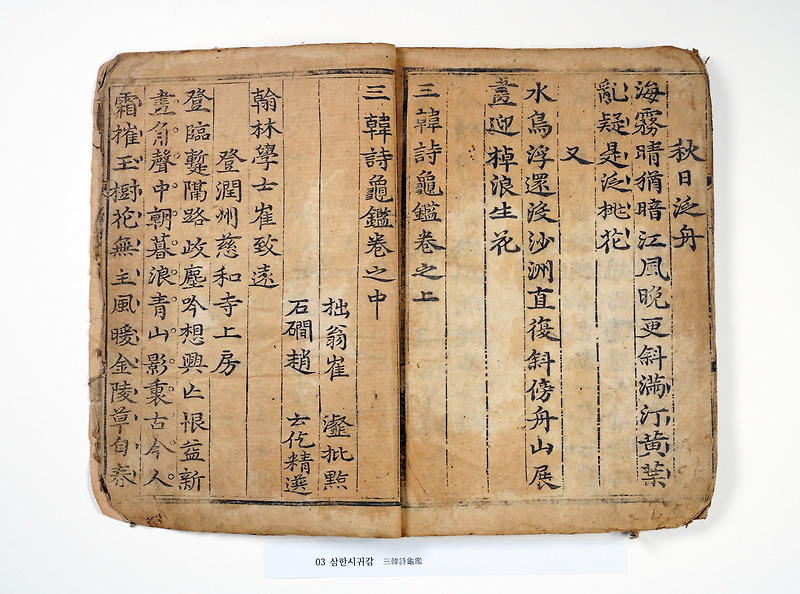 秋日泛舟
海霧晴猶暗江風晚更斜滿汀黃葉
亂疑是泛桃花
又
水鳥浮還沒沙洲直復斜傍舟山展
畫迎棹浪生花
三韓詩龜鑑卷之上
三韓詩龜鑑卷之中
拙翁崔 瀣批點
石磵趙 云仡精選
翰林學士崔致遠
登潤州慈和寺上房
登臨蹔隔路岐塵吟想興亡恨益新
畫角聲中朝暮浪青山影裏古今人
霜摧玉樹花無主風暖金陵草自春
03 삼한시귀감 三韓詩龜鑑